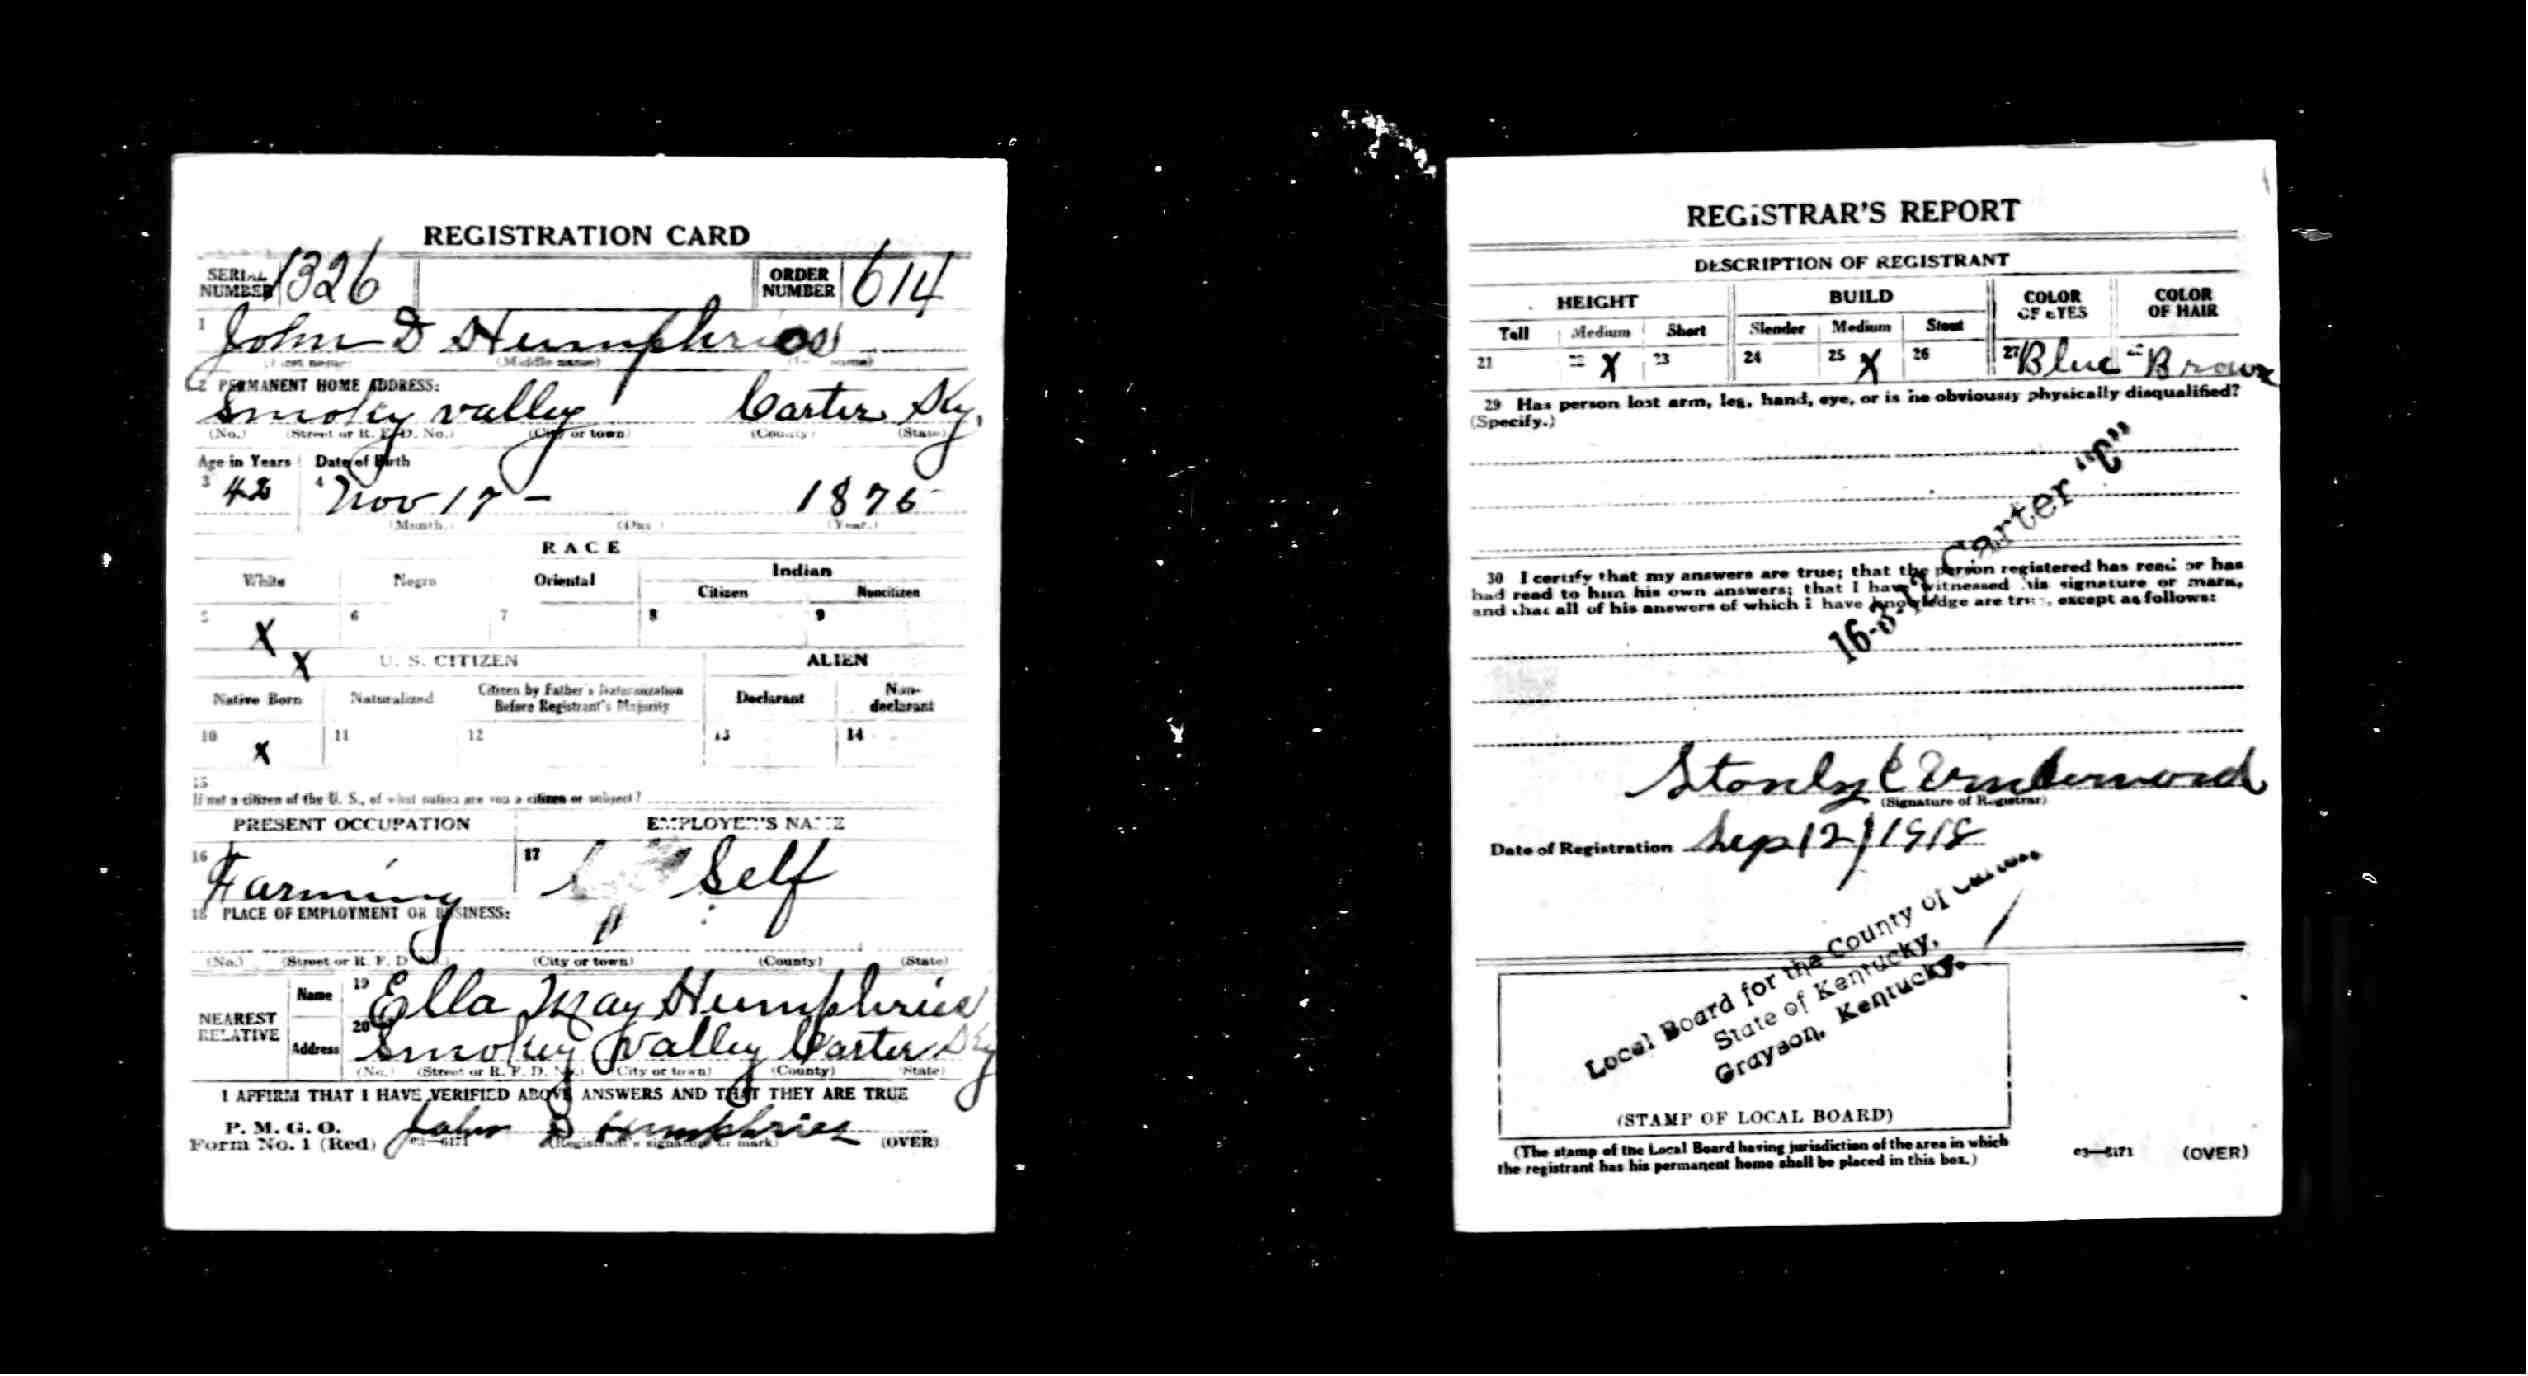 REGISTRATION CARD
SERIAL NUMBER 1326
ORDER NUMBER 614
1 John D Humphries
(First name) (Middle name) (Last name)
2 PERMANENT HOME ADDRESS:
Smoky valley Carter Ky,
(No.) (Street or R. F. D. No.) (City or town) (County) (State)
Age in Years Date of Birth
3 42 4 Nov 17 - 1876
(Month.) (Day.) (Year.)
RACE
White Negro Oriental Indian
Citizen Noncitizen
5 X 6 7 8 9
X U. S. CITIZEN ALIEN
Native Born Naturalized Citizen by Father's Naturalization Before Registrant's Majority Declarant Non-declarant
10 X 11 12 13 14
15
If not a citizen of the U. S., of what nation are you a citizen or subject?
PRESENT OCCUPATION EMPLOYER'S NAME
16 Farming 17 Self
18 PLACE OF EMPLOYMENT OR BUSINESS:
(No.) (Street or R. F. D. No.) (City or town) (County) (State)
NEAREST RELATIVE
Name 19 Ella May Humphries
Address 20 Smokey Valley Carter Ky
(No.) (Street or R. F. D. No.) (City or town) (County) (State)
I AFFIRM THAT I HAVE VERIFIED ABOVE ANSWERS AND THAT THEY ARE TRUE
P. M. G. O.
Form No. 1 (Red) 03—6171 John D Humphries (OVER)
(Registrant's signature or mark)
REGISTRAR'S REPORT
DESCRIPTION OF REGISTRANT
HEIGHT BUILD COLOR OF EYES COLOR OF HAIR
Tall Medium Short Slender Medium Stout
21 22 X 23 24 25 X 26 27 Blue 28 Brown
29 Has person lost arm, leg, hand, eye, or is he obviously physically disqualified?
(Specify.)
Carter "C"
30 I certify that my answers are true; that the person registered has read or has
had read to him his own answers; that I have witnessed his signature or mark,
and that all of his answers of which I have knowledge are true, except as follows:
Stanly C Underwood
(Signature of Registrar)
Date of Registration Sep 12/1918
Local Board for the County of Carter
State of Kentucky,
Grayson, Kentucky.
(STAMP OF LOCAL BOARD)
(The stamp of the Local Board having jurisdiction of the area in which
the registrant has his permanent home shall be placed in this box.)
03—6171 (OVER)